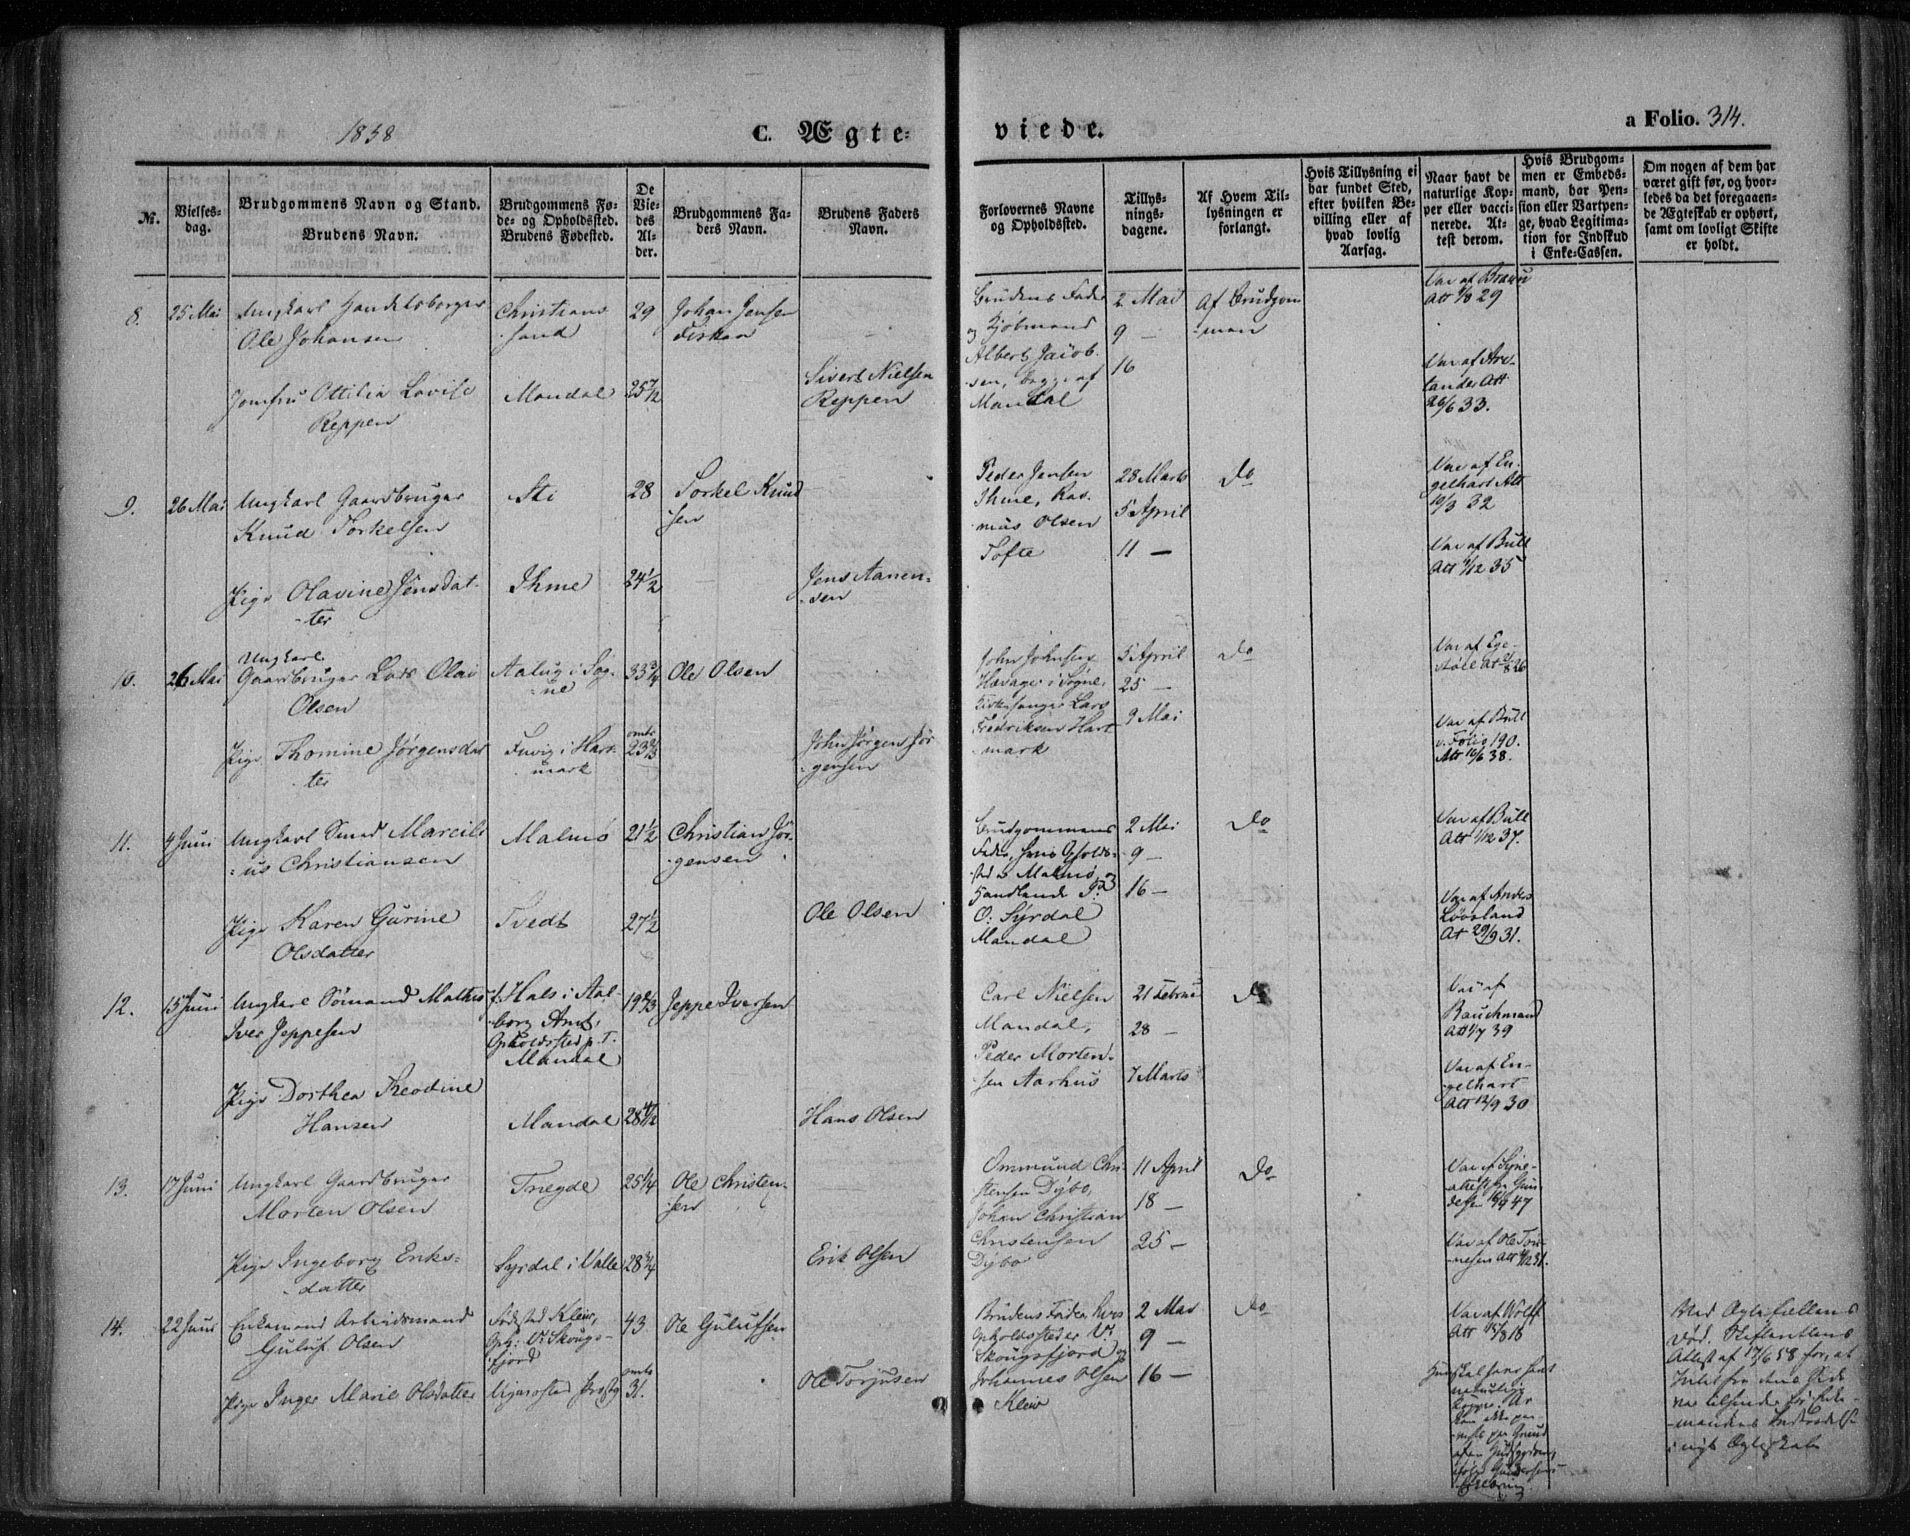 1858
C. Ægte-
viede.
a Folio. 314.
№.
Vielses-
dag.
Brudgommens Navn og Stand.
Brudens Navn.
Brudgommens Fø-
de- og Opholdssted.
Brudens Fødested.
De
Vie-
des
Al-
der.
Brudgommens Fa-
ders Navn.
Brudens Faders
Navn.
Forlovernes Navne
og Opholdssted.
Tillys-
nings-
dagene.
Af Hvem Til-
lysningen er
forlangt.
Hvis Tillysning ei
har fundet Sted,
efter hvilken Be-
villing eller af
hvad lovlig
Aarsag.
Naar havt de
naturlige Kop-
per eller vacci-
nerede. At-
test derom.
Hvis Brudgom-
men er Embeds-
mand, har Pen-
sion eller Vartpen-
ge, hvad Legitima-
tion for Indskud
i Enke-Cassen.
Om nogen af dem har
været gift før, og hvor-
ledes da det foregaaen-
de Ægteskab er ophørt,
samt om lovligt Skifte
er holdt.
8.
25 Mai
Ungkarl Handelsborger
Ole Johansen
Christians
sand
29
Johan Jensen
Brudens Fader
og Kjøbmand
Albert Jacob-
sen, begge af
Mandal
2 Mai
9 —
16
Af Brudgom
-men
Vac af
Att 1/8 29
Jomfru Ottilia Lovise
Reppen
Mandal
25 1/2
Sivert Nielsen
Reppen
Vac af Are-
lander Att
26/6 33.
9.
26 Mai
Ungkarl Gaardbruger
Knud Torkelsen
Sti
28
Torkel Knud
sen
Peder Jensen
Ihme, Ras-
mus Olsen
Tofte
28 Marts
5 April
11 —
Do
Vac af En-
gelhart Att
19/3 32
Pige Olavine Jensdat-
-ter
Ihme
24 1/2
Jens Aanen-
-sen
Vac af Bull
Att 1/12 35
10.
26 Mai
Ungkarl
Gaardbruger Lars Olai
Olsen
Aalug i Søg-
-ne
33 3/4
Ole Olsen
John Johnsen
Høvager i Søgne,
Kirkesanger Lars
Fredriksen Hart
-mark
5 April
25 —
9 Mai
Do
Pige Thomine Jørgensdat
-ter
Fuvig i Hart-
mark
omtr
23 2/3
John Jørgen Jør
-gensen
Vac af Bull
v. Folio 190.
Att 16/6 38.
11.
4 Juni
Ungkarl Smed Marcili
-us Christiansen
Malmø
21 1/2
Christian Jør-
-gensen
Brudgommens
Fader, hvis Opholds-
sted er Malmø,
O: Syrdal
Mandal
2 Mai
9 —
16 —
Do
Vac af Bull
Att 1/12 37.
Pige Karen Gurine
Olsdatter
Tvedt
27 1/2
Ole Olsen
Vac af Anders
Løvsland
At 29/9 31.
12.
15 Juni
Ungkarl Sømand Mathis
Iver Jeppesen
f. Hals i Aal-
borg Amt,
Opholdssted p. T.
Mandal
19 2/3
Jeppe Iversen
Carl Nielsen
Mandal,
Peder Morten-
sen Aarhus
21 Februa
28 —
7 Marts
Do
Vac af
Bauchmand
Att 1/7 39
Pige Dorthea Theodine
Hansen
Mandal
28 1/2
Hans Olsen
Vac af En-
gelhart
Att 12/9 30
13.
17 Juni
Ungkarl Gaardbruger
Morten Olsen
Tregde
25 1/4
Ole Christen-
-sen
Ommund Chri-
stensen Dybo,
Johan Christian
Christensen
Dybo
11 April
18 —
25 —
Do
Pige Ingeborg Eriks-
-datter
Syrdal i Valle
28 3/4
Erik Olsen
Vac af Ole Tøn-
nesen Att
14.
22 Juni
Enkemand Arbeidsmand
Guluf Olsen
Fødested Kleiv,
Oph: V: Skougs-
fjord
43
Ole Gulufsen
Brudens Fader, hvis
Opholdssted er V:
Skougsfjord og
Johannes Olsen
Kleiv
2 Mai
9 —
16 —
Do
Vac af Wolff
Att 15/8 18
Pige Inger Marie Olsdatter
omtr
31.
Ole Torjusen
Hun skal have havt
naturlige
Kopper. Ar
Ved Ægtefællens
Død. Skifterettens
Attest af 17/6 58 for, at
Intet fra dens Side
var tilhinder for Enke-
-mandens Indtrædelse
i nyt Ægteskab